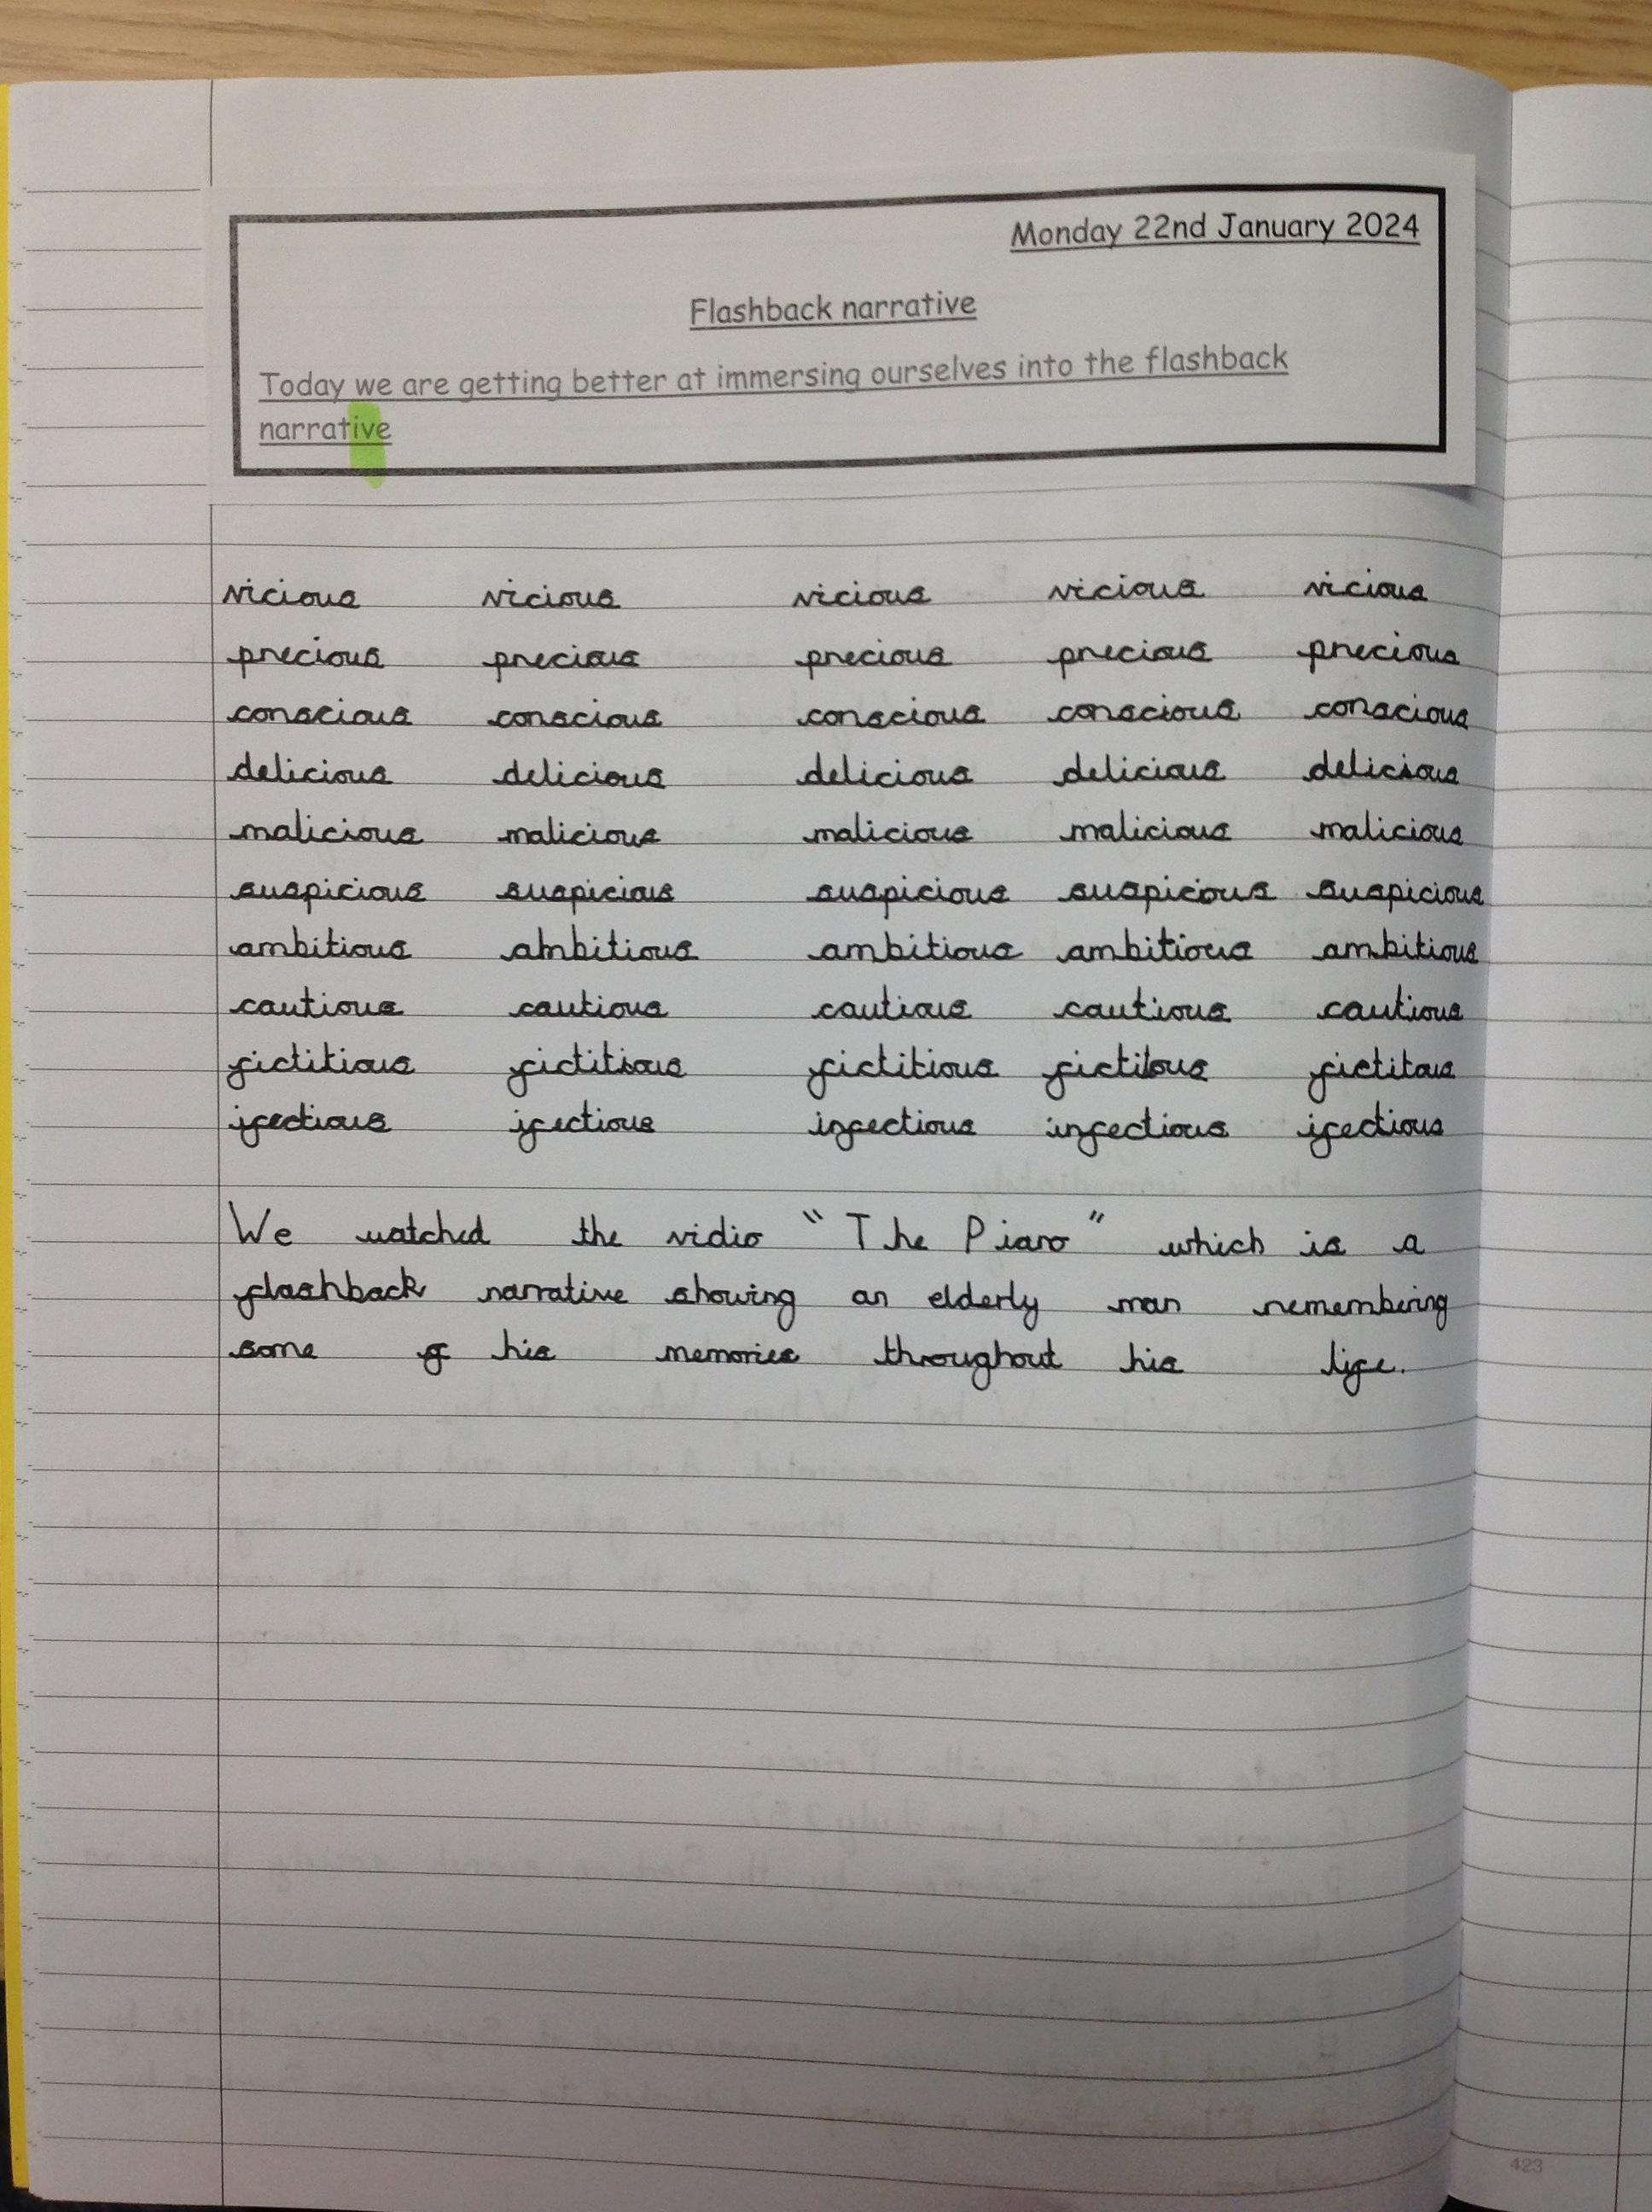 Monday 22nd January 2024
Flashback narrative
Today we are getting better at immersing ourselves into the flashback
narrative
vicious vicious vicious vicious vicious
precious precious precious precious precious
conscious conscious conscious conscious conscious
delicious delicious delicious delicious delicious
malicious malicious malicious malicious malicious
suspicious suspicious suspicious suspicious suspicious
ambitious ambitious ambitious ambitious ambitious
cautious cautious cautious cautious cautious
fictitious fictitious fictitious fictitous fictitous
ifectious ifectious infectious infectious ifectious
We watched the vidio "The Piano" which is a
flashback narrative showing an elderly man remembering
some of his memories throughout his life.
423